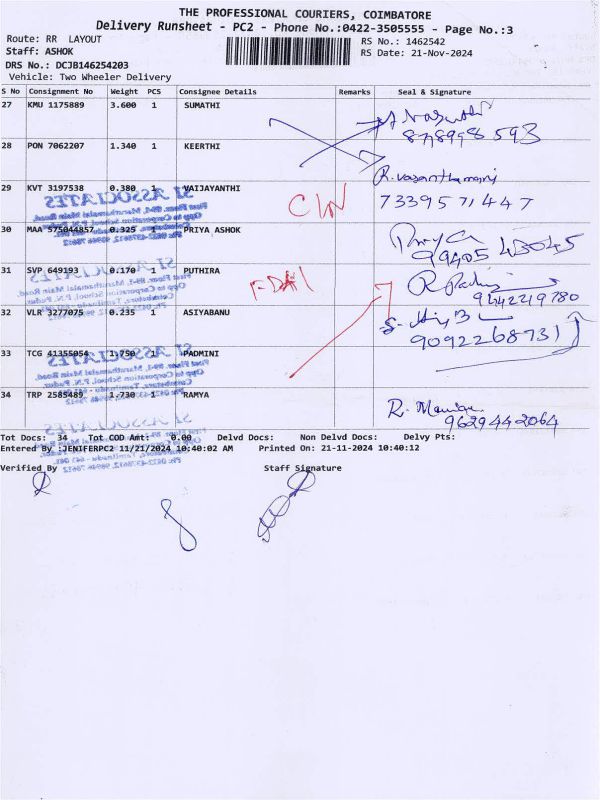 THE PROFESSIONAL COURIERS, COIMBATORE
Delivery Runsheet - PC2 - Phone No.:0422-3505555 - Page No.:3
Route: RR LAYOUT
RS No.: 1462542
Staff: ASHOK
RS Date: 21-Nov-2024
DRS No.: DCJB146254203
Vehicle: Two Wheeler Delivery
S No Consignment No Weight PCS Consignee Details Remarks Seal & Signature
27 KMU 1175889 3.600 1 SUMATHI
28 PON 7062207 1.340 1 KEERTHI
R. vasanthamani
29 KVT 3197538 0.380 1 VAIJAYANTHI
7339571447
30 MAA 575044857 0.325 1 PRIYA ASHOK
Priya
31 SVP 649193 0.170 1 PUTHIRA
9442219780
32 VLR 3277075 0.235 1 ASIYABANU
9092268731
33 TCG 41355054 1.750 1 PADMINI
34 TRP 2585489 1.730 1 RAMYA
9629442064
Tot Docs: 34 Tot COD Amt: 0.00 Delvd Docs: Non Delvd Docs: Delvy Pts:
Entered By :JENIFERPC2 11/21/2024 10:40:02 AM Printed On: 21-11-2024 10:40:12
Verified By Staff Signature